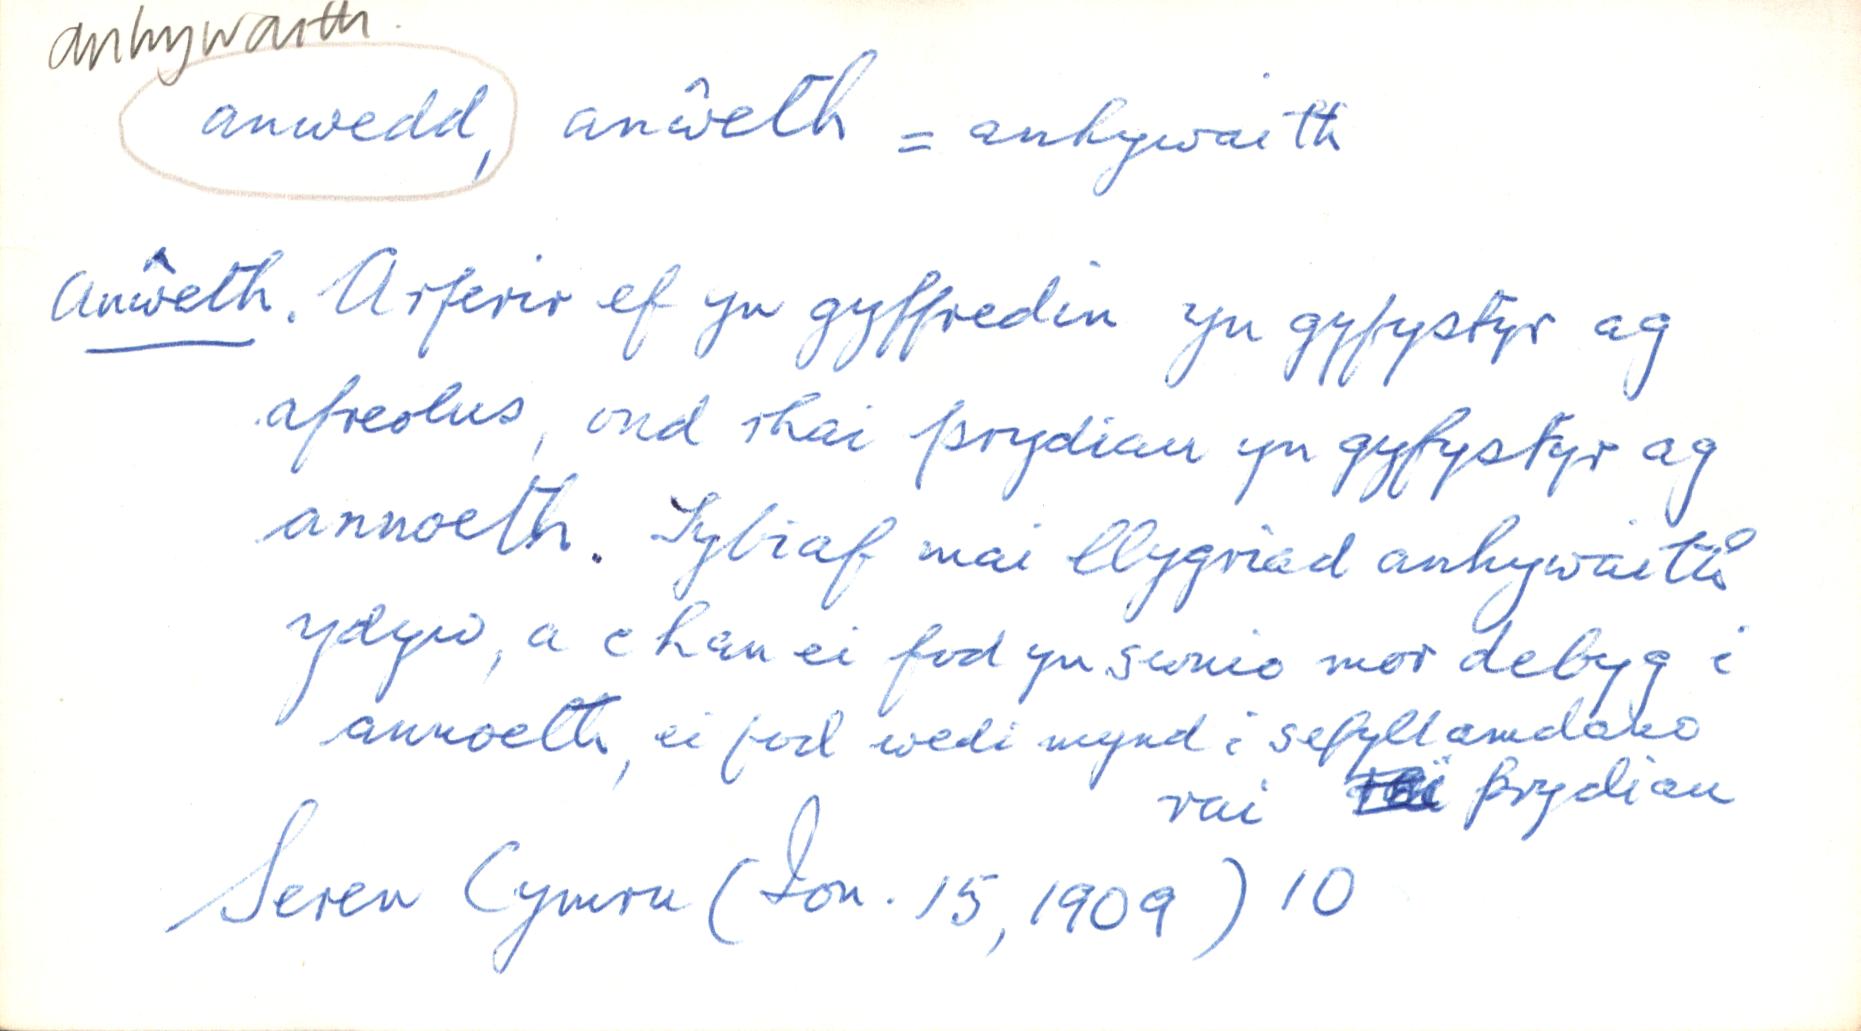 anhywaith.
anwedd, anŵeth = anhywaith
Anŵeth. Arferir ef yn gyffredin yn gyfystyr ag
afreolus, ond rhai prydiau yn gyfystyr ag
annoeth. Tybiaf mai llygriad anhywaith
ydyw, a chan ei fod yn swnio mor debyg i
annoeth, ei fod wedi mynd i sefyll amdano
rai prydiau
Seren Cymru (Ion. 15, 1909) 10